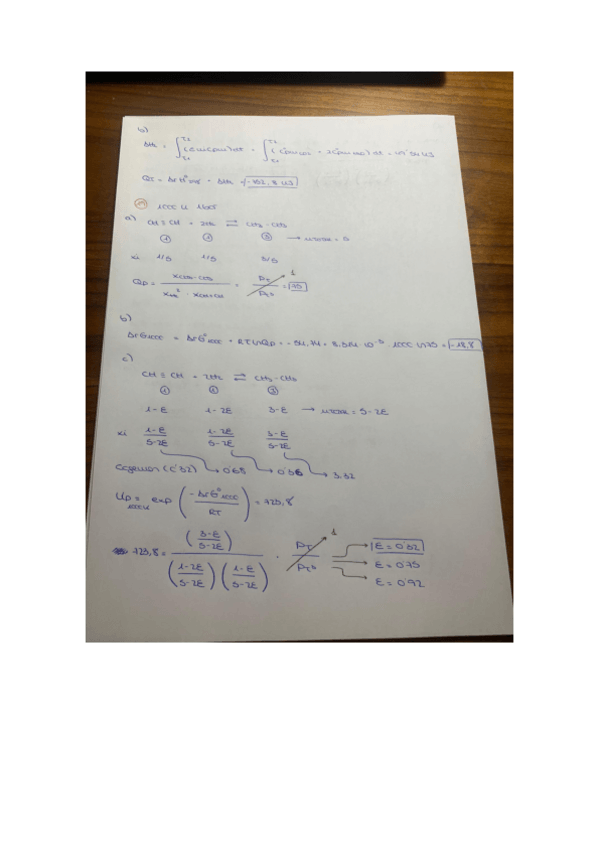 b)
ΔH₂ = ∫_{T1}^{T2} ( ) dt = ∫_{T1}^{T2} ( ) dt = 54 kJ
QT = ΔrH° + ΔH₂ = -192,8 kJ
1000 K 1 bar
a) CH ≡ CH + 2H₂ ⇌ CH₃-CH₃
① ① ③ → n TOTAL = 5
xi 1/5 1/5 3/5
Qp = x CH₃-CH₃ / (x H₂² · x CH≡CH) · PT/PT° = 75
b)
ΔrG1000 = ΔrG°1000 + RT ln Qp = · 10⁻³ · 1000 ln 75 = -18,8
c)
CH ≡ CH + 2H₂ ⇌ CH₃-CH₃
① ① ③
1-E 1-2E 3-E → n TOTAL = 5-2E
xi (1-E)/(5-2E) (1-2E)/(5-2E) (3-E)/(5-2E)
Cogemos (0'32) → 0'68 → 0'36 → 3,32
Kp 1000K = exp (-ΔrG°1000 / RT) = 725,8
725,8 = ((3-E)/(5-2E)) / (((1-2E)/(5-2E)) ((1-E)/(5-2E))) · PT/PT° → E = 0'32
E = 0'75
E = 0'92